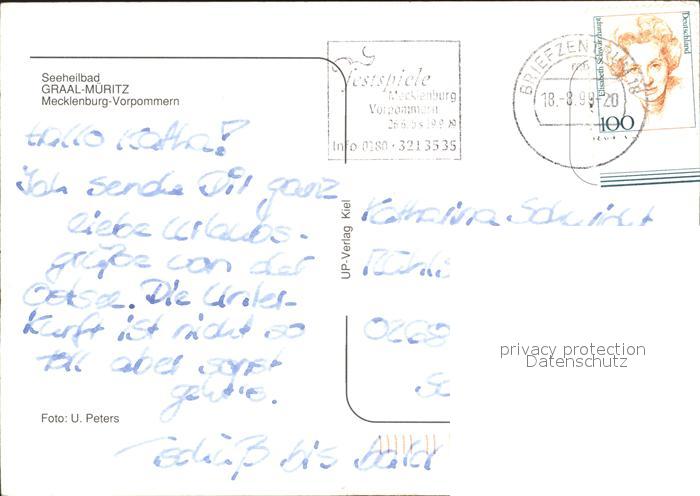 Seeheilbad
GRAAL-MÜRITZ
Mecklenburg-Vorpommern
Festspiele
Mecklenburg
Vorpommern
Info 0180 · 3213535
BRIEFZENTRUM 18
18.-8.99-20
Deutschland
Elisabeth Schwarzhaupt
100
Hallo Katha!
Ich sende Dir ganz
liebe Urlaubs-
grüße von der
Ostsee. Die Unter-
kunft ist nicht so
toll aber sonst
geht's.
Tschüß bis bald
UP-Verlag Kiel
Katharina
privacy protection
Datenschutz
Foto: U. Peters